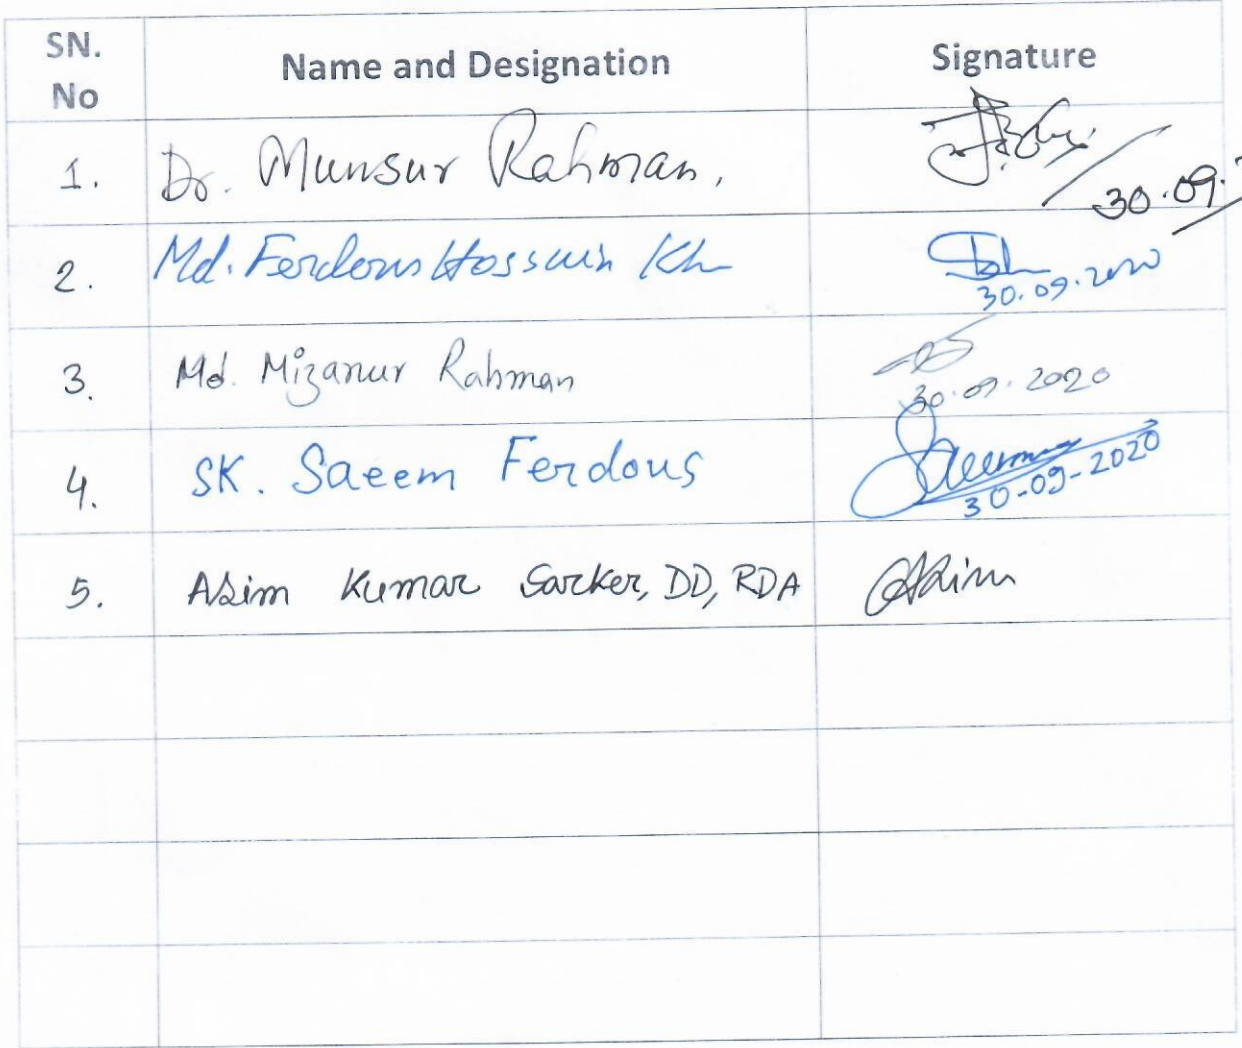 SN. No Name and Designation Signature
1. Dr. Munsur Rahman, 30.09.
2. Md. Ferdous Hossain Kh 30.09.2020
3. Md. Mizanur Rahman 30.09.2020
4. SK. Saeem Ferdous Saeem 30-09-2020
5. Asim Kumar Sarker, DD, RDA Asim